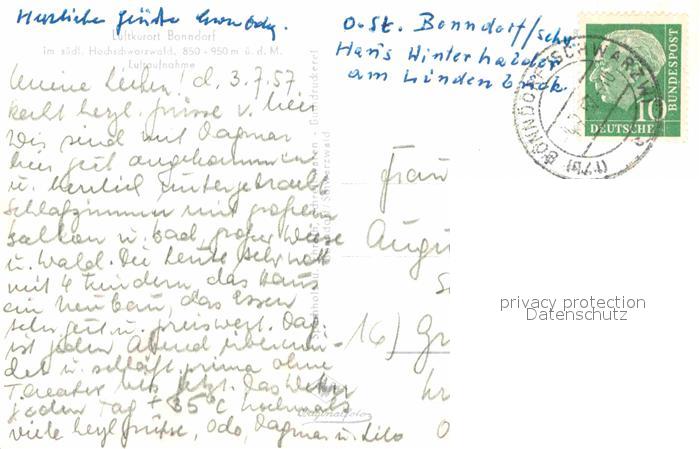 Herzliche Grüße
Luftkurort Bonndorf
im südl. Hochschwarzwald, 850 - 950 m ü. d. M.
Luftaufnahme
O. St. Bonndorf/Schw.
Hans Winterhalder
am Lindenbuck.
BONNDORF (SCHWARZW)
(17b)
10
DEUTSCHE
BUNDESPOST
Meine Lieben! d. 3.7.57
herzl. Grüsse v. hier
Wir sind mit Dagmar
hier gut angekommen
u. herrlich untergebracht
Schlafzimmer mit großem
Balkon u. Bad, großer Wiese
u. Wald. Die Leute sehr nett
mit 4 Kindern, das Haus
ein Neubau, das Essen
sehr gut u. preiswert. Dag.
ist jeden Abend
u. schläft prima ohne
Theater bis jetzt. Das Wetter
jeden Tag + 35°C nochmals
viele herzl. Grüsse, Odo, Dagmar u. Lilo
Frau
Augu
16) Gr
privacy protection
Datenschutz